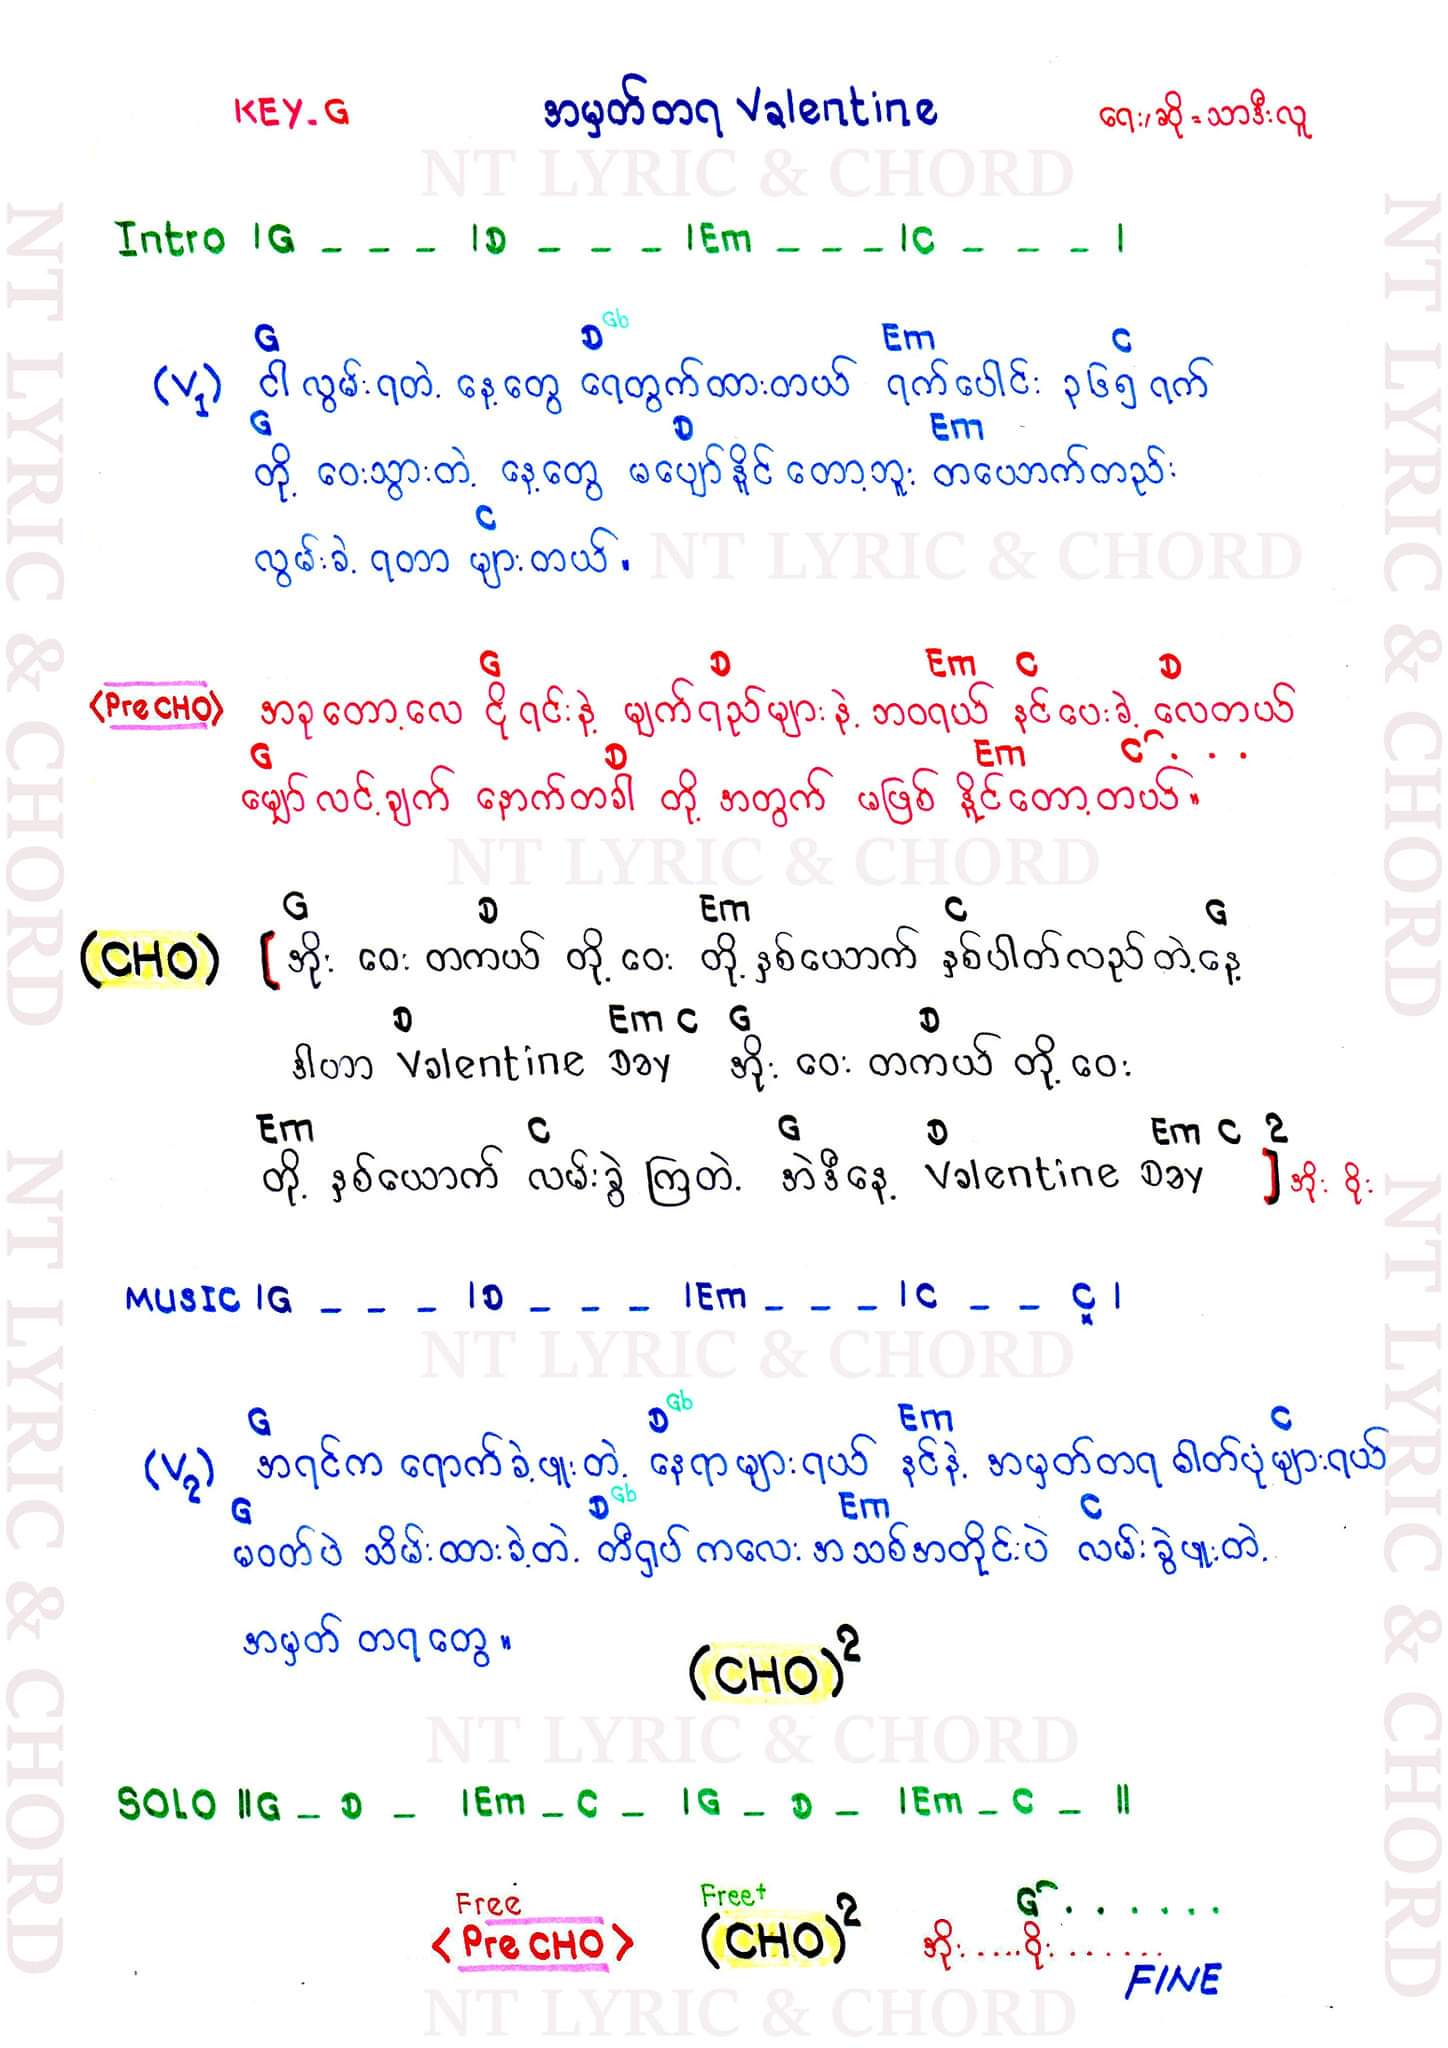 KEY-G အမှတ်တရ Valentine ရေး/ဆို = သာဒီးလူ
NT LYRIC & CHORD
Intro |G _ _ _ |D _ _ _ |Em _ _ _ |C _ _ _ |
G D Gb Em C
(V1) ငါ လွမ်းရတဲ့ နေ့တွေ ရေတွက်ထားတယ် ရက်ပေါင်း ၃၆၅ ရက်
G D Em
တို့ ဝေးသွားတဲ့ နေ့တွေ မပျော်နိူင် တော့ဘူး တယောက်တည်း
C
လွမ်းခဲ့ ရတာ များတယ်။
NT LYRIC & CHORD
G D Em C D
<Pre CHO> အခုတော့လေ ငိုရင်းနဲ့ မျက်ရည်များနဲ့ ဘဝရယ် နင်ပေးခဲ့ လေတယ်
G D Em C . . .
မျှော်လင့်ချက် နောက်တခါ တို့ အတွက် မဖြစ် နိူင်တော့တယ်။
NT LYRIC & CHORD
G D Em C G
(CHO) [အိုး ဝေး တကယ် တို့ ဝေး တို့ နှစ်ယောက် နှစ်ပါတ်လည်တဲ့နေ့
D Em C G D
ဒါဟာ Valentine Day အိုး ဝေး တကယ် တို့ ဝေး
Em C G D Em C 2
တို့ နှစ်ယောက် လမ်းခွဲ ကြတဲ့ အဲဒီနေ့ Valentine Day ] အိုး ဝိုး
MUSIC |G _ _ _ |D _ _ _ |Em _ _ _ |C _ _ C |
x
NT LYRIC & CHORD
G D Gb Em C
(V2) အရင်က ရောက်ခဲ့ဖူးတဲ့ နေရာများရယ် နင်နဲ့ အမှတ်တရ ဓါတ်ပုံများရယ်
G D Gb Em C
မဝတ်ပဲ သိမ်းထားခဲ့တဲ့ တီရှပ် ကလေး အသစ်အတိုင်းပဲ လမ်းခွဲဖူးတဲ့
အမှတ် တရတွေ။
(CHO)2
NT LYRIC & CHORD
SOLO ||G _ D _ |Em _ C _ |G _ D _ |Em _ C _ ||
Free Free+ G . . . . . . .
<Pre CHO> (CHO)2 အိုး ....ဝိုး .......
FINE
NT LYRIC & CHORD
NT LYRIC & CHORD
NT LYRIC & CHORD
NT LYRIC & CHORD
NT LYRIC & CHORD